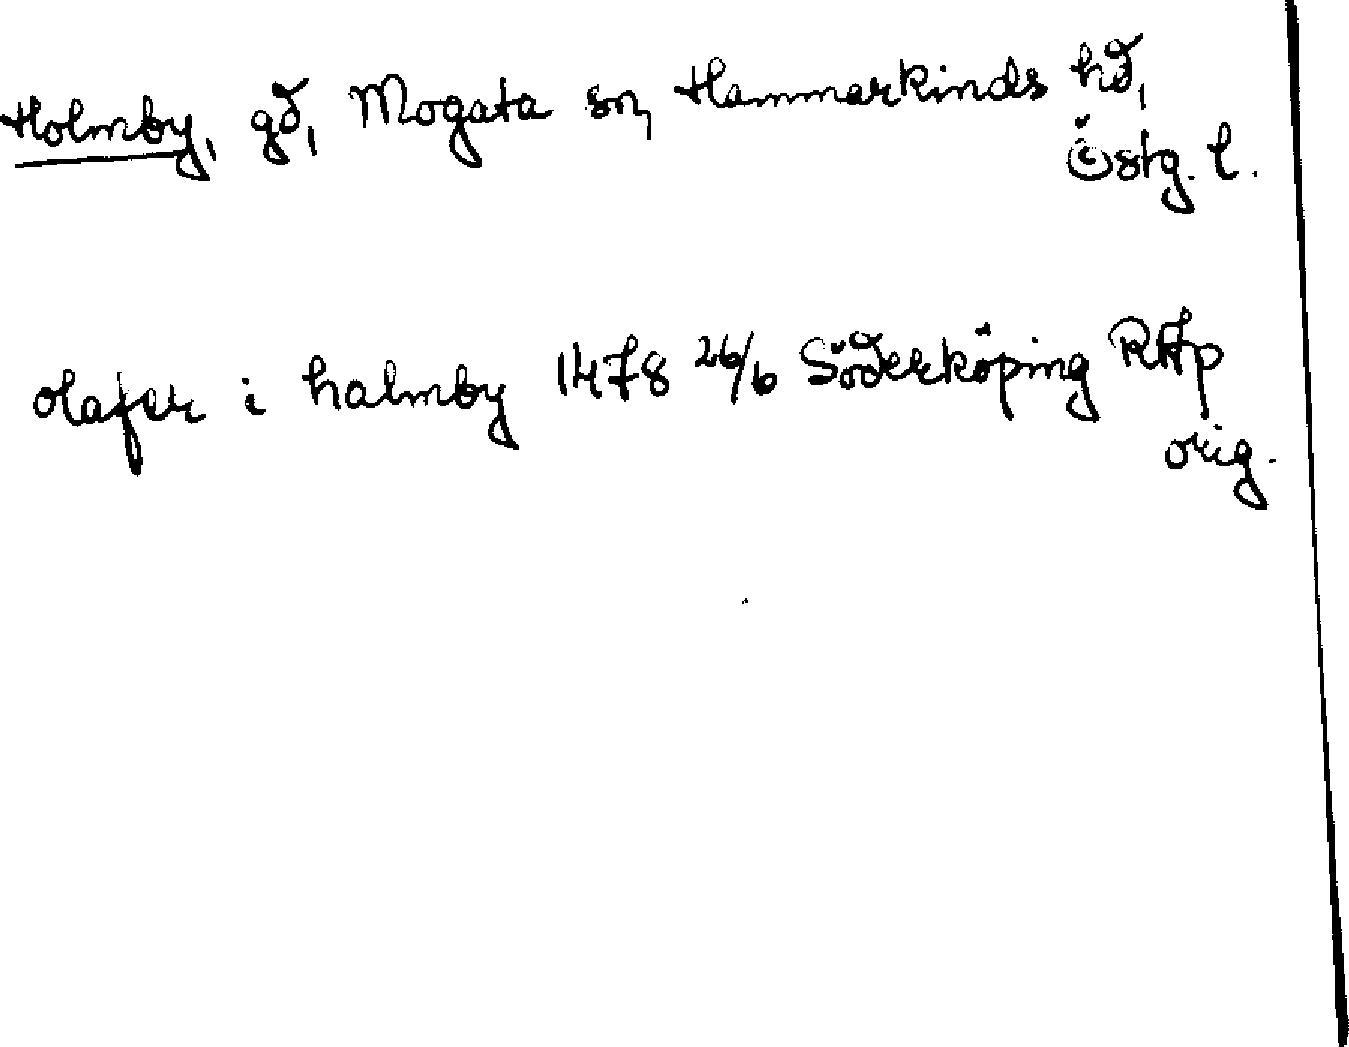 Holmby, gd, Mogata sn, Hammarkinds hd,
Östg. l.
olafer i halmby 1478 26/6 Söderköping RAp
orig.